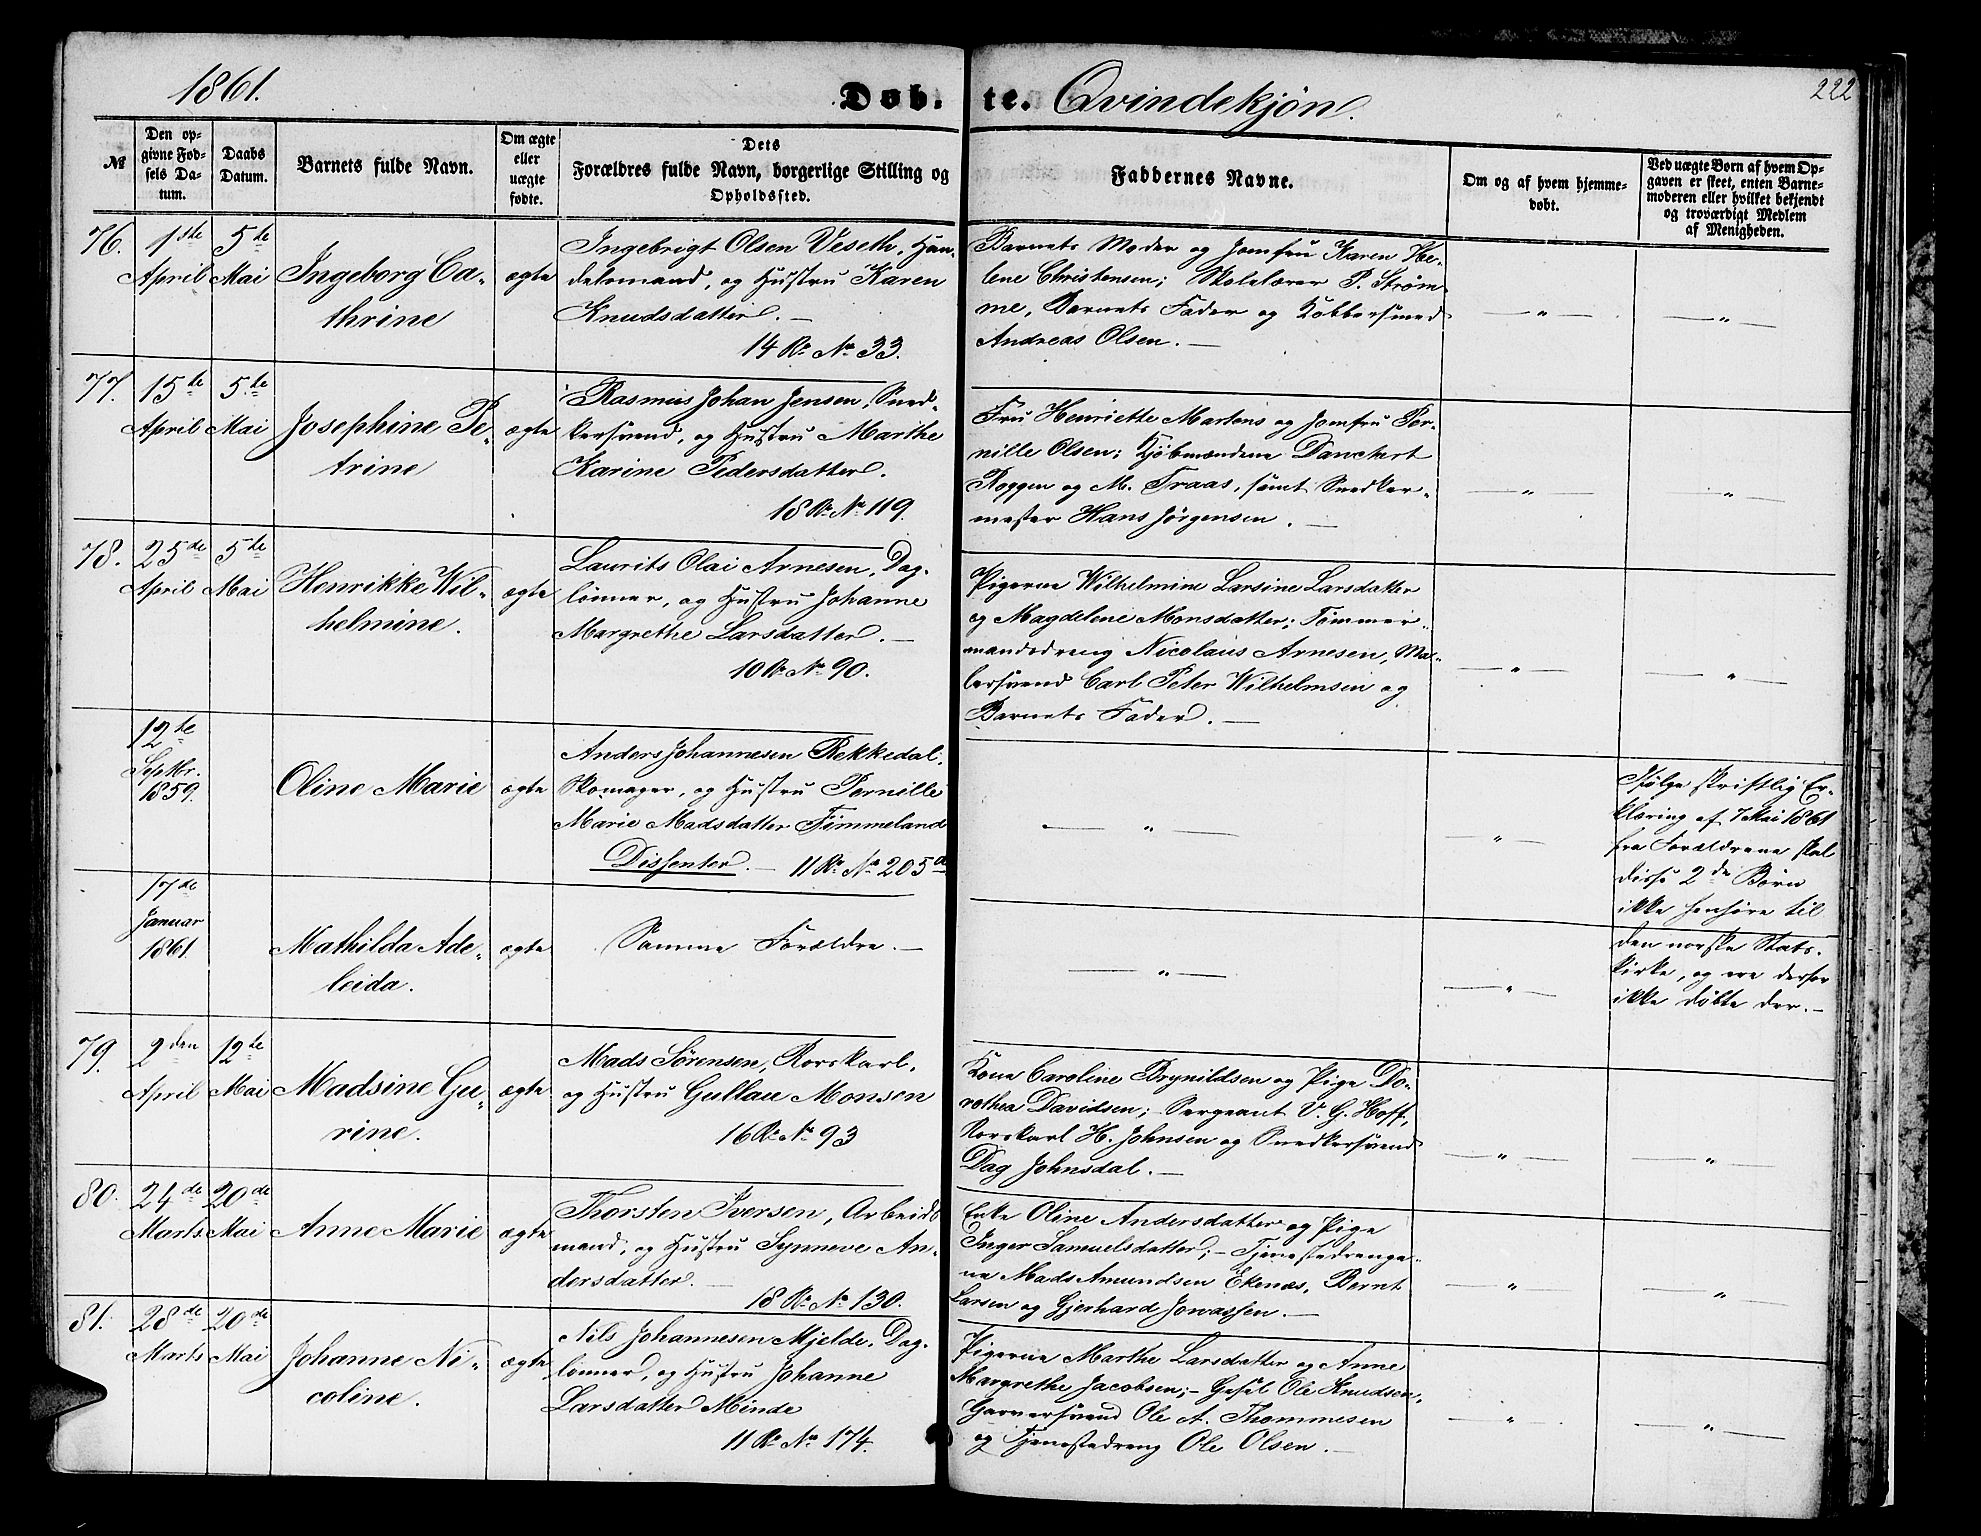 1861.
Døb-te. Qvindekjøn.
222
№
Den op-
givne Fød-
sels Da-
tum.
Daabs
Datum.
Barnets fulde Navn.
Om ægte
eller
uægte
fødte.
Dets
Forældres fulde Navn, borgerlige Stilling og
Opholdssted.
Faddernes Navne.
Om og af hvem hjemme-
døbt.
Ved uægte Børn af hvem Op-
gaven er skeet, enten Barne-
moderen eller hvilket bekjendt
og troværdigt Medlem
af Menigheden.
76.
1ste
April
5te
Mai
Ingeborg Ca-
thrine
ægte
Ingebrigt Olsen Veseth, Han-
delsmand, og Hustru Karen
Knudsdatter. —
14 R. No 33.
Barnets Moder og Jomfru Karen He-
lene Christensen; Skolelærer P. Strøm-
me, Barnets Fader og Kobbersmed
Andreas Olsen. —
— " —
— " —
77.
15te
April
5te
Mai
Josephine Pe-
trine
ægte
Rasmus Johan Jensen, Sned-
kersvend, og Hustru Marthe
Karine Pedersdatter.
18 R. No 119.
Fru Henriette Martens og Jomfru Per-
nille Olsen; Kjøbmændene Danckert
Roggen og M. Traas, samt Snedker-
mester Hans Jørgensen. —
— " —
— " —
78.
25de
April
5te
Mai
Henrikke Wil-
helmine.
ægte
Laurits Olai Arnesen, Dag-
lønner, og Hustru Johanne
Margrethe Larsdatter. —
10 R. No 90.
Pigerne Wilhelmine Larsine Larsdatter
og Magdelene Monsdatter; Tømmer-
mandsdreng Nicolaus Arnesen, Ma-
lersvend Carl Peter Wilhelmsen og
Barnets Fader. —
— " —
— " —
12te
Septbr.
1859.
Oline Marie
ægte
Anders Johannesen Rekkedal,
Skomager, og Hustru Pernille
Marie Madsdatter Timmeland
Dissenter. — 11 R. No 205a
— " —
"
Ifølge skriftlig Er-
klæring af 7 Mai 1861
fra Forældrene skal
disse 2de Børn
ikke henhøre til
den norske Stats-
kirke, og ere derfor
ikke døbte der. —
17de
Januar
1861.
Mathilda Ade-
leida.
ægte
Samme Forældre. —
— " —
— " —
79.
2den
April
12te
Mai
Madsine Gu-
rine.
ægte
Mads Sørensen, Rorskarl,
og Hustru Gullau Monsen
16 R. No 93
Kone Caroline Brynildsen og Pige Do-
rothea Davidsen; — Sergeant V. G. Hoff,
Rorskarl H. Johnsen og Snedkersvend
Dag Johnsdal. —
— " —
— " —
80.
24de
Marts
20de
Mai
Anne Marie
ægte
Thorsten Iversen, Arbeids-
mand, og Hustru Synneve An-
dersdatter. —
18 R. No 130.
Enke Oline Andersdatter og Pige
Inger Samuelsdatter; — Tjenestedrenge-
ne Mads Amundsen Ekenæs, Bernt
Larsen og Gjerhard Jonassen. —
— " —
— " —
81.
28de
Marts
20de
Mai
Johanne Ni-
coline.
ægte
Nils Johannesen Mjelde, Dag-
lønner, og Hustru Johanne
Larsdatter Minde
11 R. No 174.
Pigerne Marthe Larsdatter og Anne
Margrethe Jacobsen; — Gesel Ole Knudsen,
Garversvend Ole A. Thommesen
og Tjenestedreng Ole Olsen. —
— " —
— " —